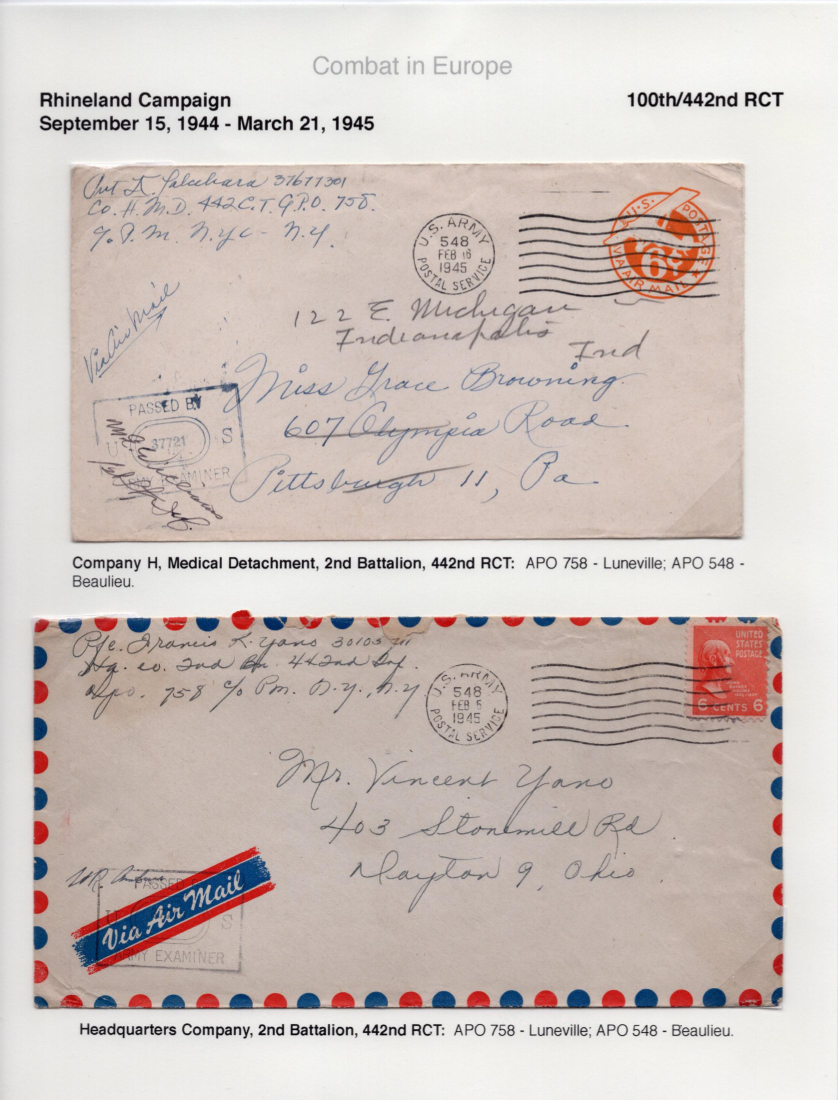 Combat in Europe
Rhineland Campaign
100th/442nd RCT
September 15, 1944 - March 21, 1945
37677301
Co. H. M.D. 442 C.T. A.P.O. 758.
% P.M. N.Y.C - N.Y.
U.S. ARMY
548
FEB 16
1945
POSTAL SERVICE
U.S. POSTAGE
6¢
VIA AIR MAIL
Via Air Mail
122 E. Michigan
Indianapolis
Ind
Miss Grace Browning
607 Olympia Road
Pittsburgh 11, Pa
PASSED BY
U 37721 S
ARMY EXAMINER
Company H, Medical Detachment, 2nd Battalion, 442nd RCT: APO 758 - Luneville; APO 548 -
Beaulieu.
Pfc. Francis K. Yano
Hq. co. 2nd Bn 442nd Inf.
Apo. 758 c/o Pm. N.Y., N.Y
U.S. ARMY
548
FEB 5
1945
POSTAL SERVICE
UNITED
STATES
POSTAGE
6 CENTS 6
Mr. Vincent Yano
403 Stonemill Rd
Dayton 9, Ohio
PASSED
U S
Via Air Mail
ARMY EXAMINER
Headquarters Company, 2nd Battalion, 442nd RCT: APO 758 - Luneville; APO 548 - Beaulieu.